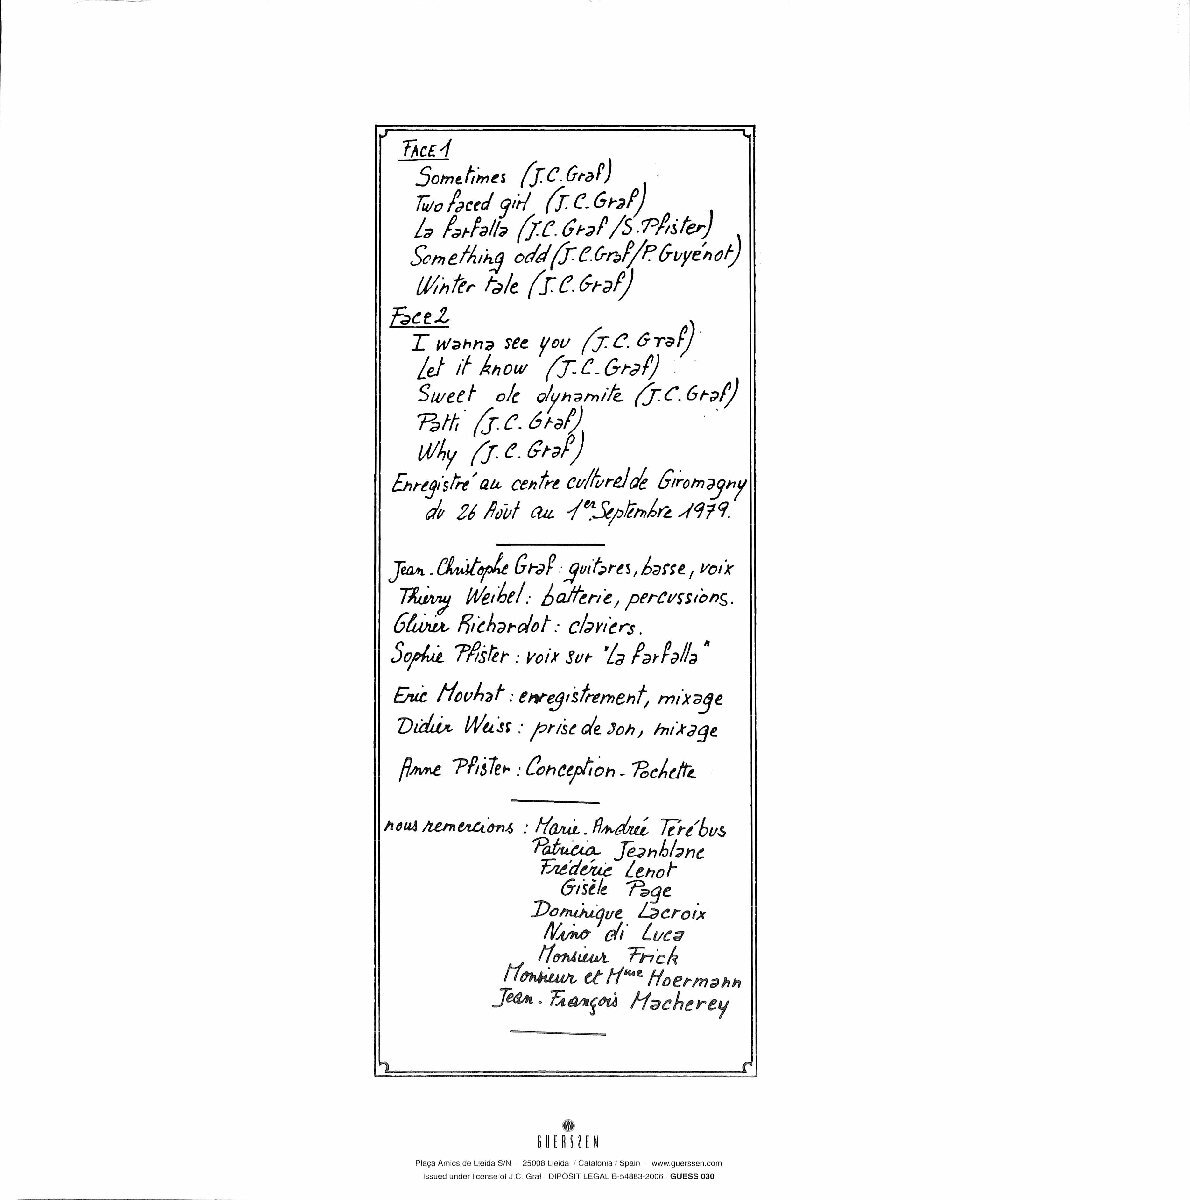 FACE 1
Sometimes (J.C. Graf)
Two faced girl (J.C. Graf)
La farfalla (J.C. Graf / S. Pfister)
Something odd (J.C. Graf / P. Guyénot)
Winter tale (J.C. Graf)
Face 2
I wanna see you (J.C. Graf)
Let it know (J.C. Graf)
Sweet ole dynamite (J.C. Graf)
Patti (J.C. Graf)
Why (J.C. Graf)
Enregistré au centre culturel de Giromagny
du 26 Août au 1er Septembre 1979.
Jean-Christophe Graf : guitares, basse, voix
Thierry Weibel : batterie, percussions.
Olivier Richardot : claviers.
Sophie Pfister : voix sur "La farfalla"
Eric Mouhat : enregistrement, mixage
Didier Weiss : prise de son, mixage
Anne Pfister : Conception - Pochette
nous remercions : Marie-Andrée Térébus
Patricia Jeanblanc
Frédéric Lenot
Gisèle Page
Dominique Lacroix
Nino di Luca
Monsieur Frick
Monsieur et Mme Hoermann
Jean-François Macherey
GUERSSEN
Plaça Amics de Lleida S/N 25008 Lleida / Catalonia / Spain www.guerssen.com
Issued under license of J.C. Graf DIPOSIT LEGAL B-54883-2006 GUESS 030